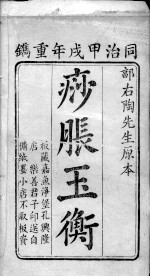 同治甲戌年重鐫
郭右陶先生原本
痧脹玉衡
板藏嘉魚淨堡孔興隆
店樂善君子印送自
備紙墨小店不取板資